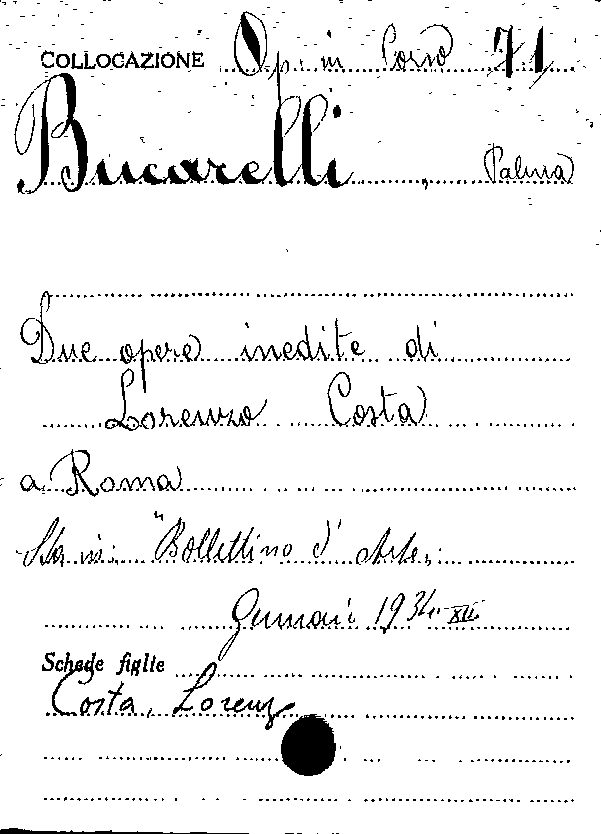 COLLOCAZIONE Op. in Corso 71
Bucarelli, Palma
Due opere inedite di
Lorenzo Costa
a Roma
Sta in: "Bollettino d'Arte,,
Gennaio 1934-XII
Schede figlie
Costa, Lorenzo